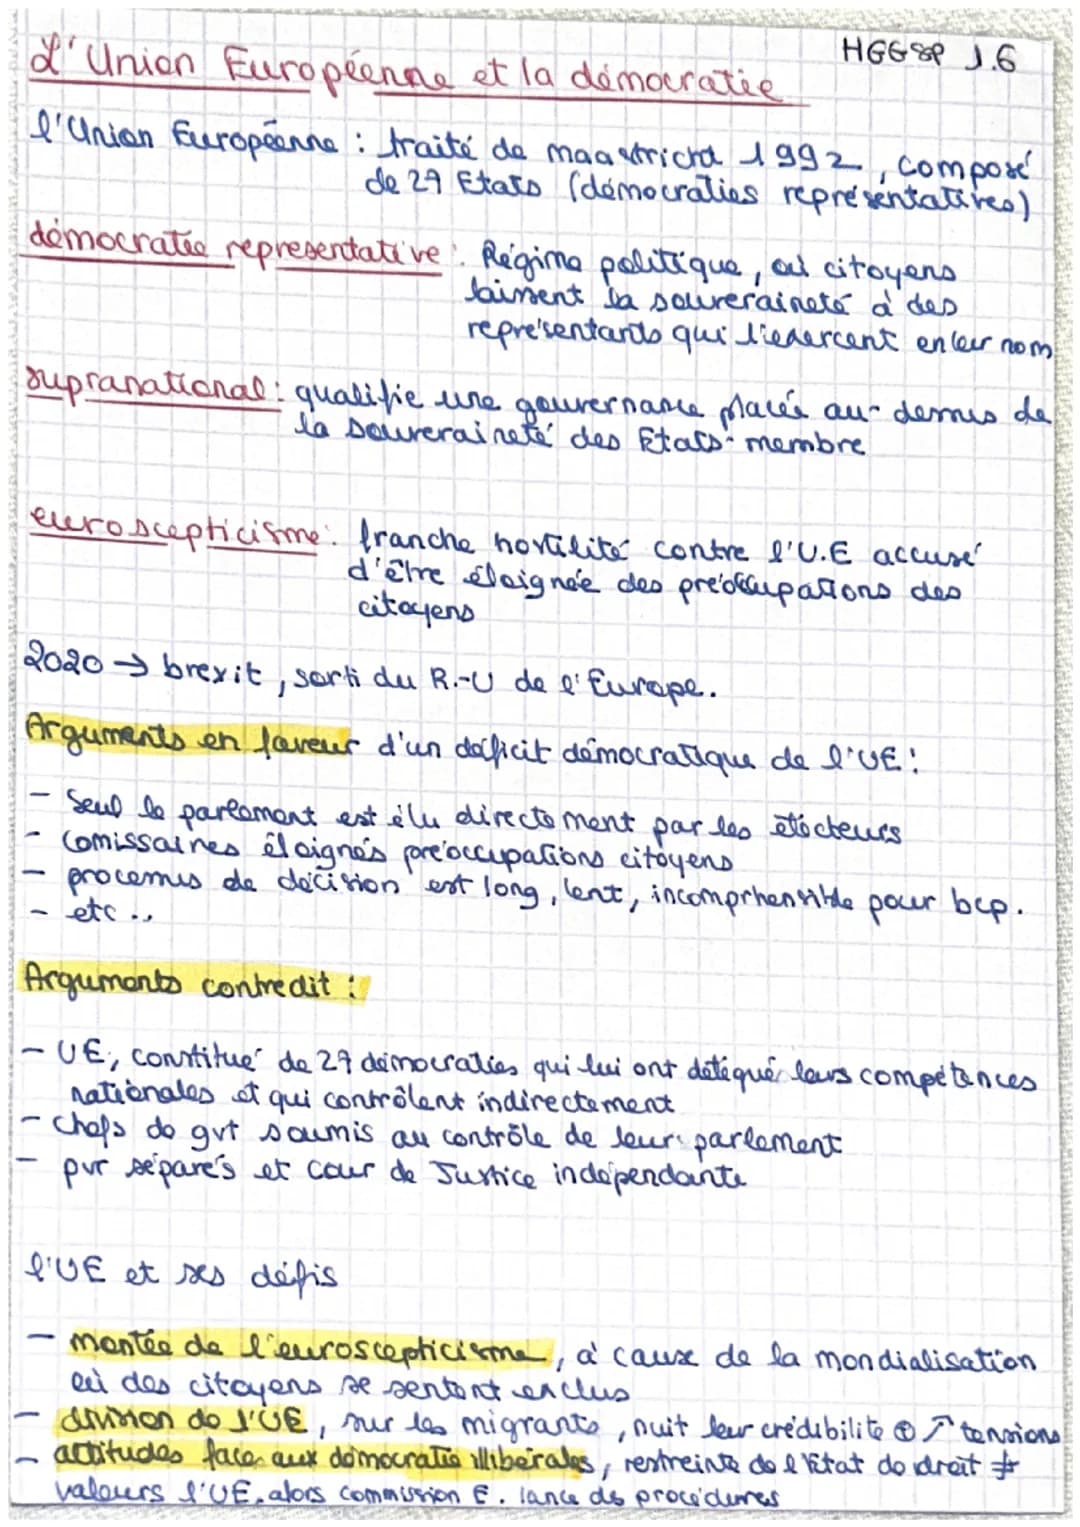 HGGSP 1.6
L'Union Européenne et la démocratie
l'Union Européenne : traité de maastricht 1992, composé
de 27 Etats (démocraties représentatives)
démocratie representative : Régime politique, où citoyens
laissent la souveraineté à des
représentants qui l'exercent en leur nom
supranational : qualifie une gouvernance placée au-dessus de
la souveraineté des Etats-membre
euroscepticisme : franche hostilité contre l'U.E accusé
d'être éloignée des préoccupations des
citoyens
2020 → brexit, sorti du R.-U de l'Europe.
Arguments en faveur d'un déficit démocratique de l'UE :
- Seul le parlement est élu directement par les électeurs
- comissaires éloignés préoccupations citoyens
- processus de décision est long, lent, incomprhensible pour bcp.
- etc ..
Arguments contredit :
- UE, constitué de 27 démocraties qui lui ont délégué leurs compétences
nationales et qui contrôlent indirectement
- Chefs de gvt soumis au contrôle de leur parlement
- pvr séparés et cour de Justice indépendante
l'UE et ses défis
- montée de l'euroscepticisme, à cause de la mondialisation
où des citoyens se sentent exclus
- division de l'UE, sur les migrants, nuit leur crédibilité ⊕ ↗ tensions
- attitudes face aux démocratie illibérales, restreinte de l'état de droit ≠
valeurs l'UE. alors commission E. lance des procédures